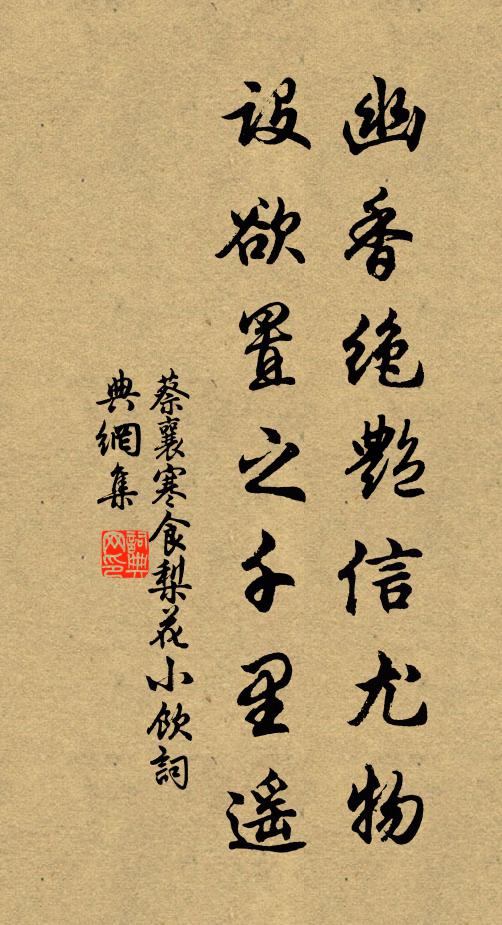 幽香绝艷信尤物
設欲置之千里遥
蔡襄寒食梨花小飲詞
典網集
詞典网印